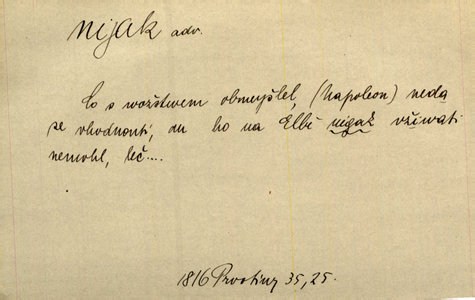 nijak adv.
Co s wogstwem obmeyšlel, (Napoleon) nedá
se vhodnouti; on ho na Elbě nigak vžiwati
nemohl, leč....
1816 Prvotiny 35, 25.